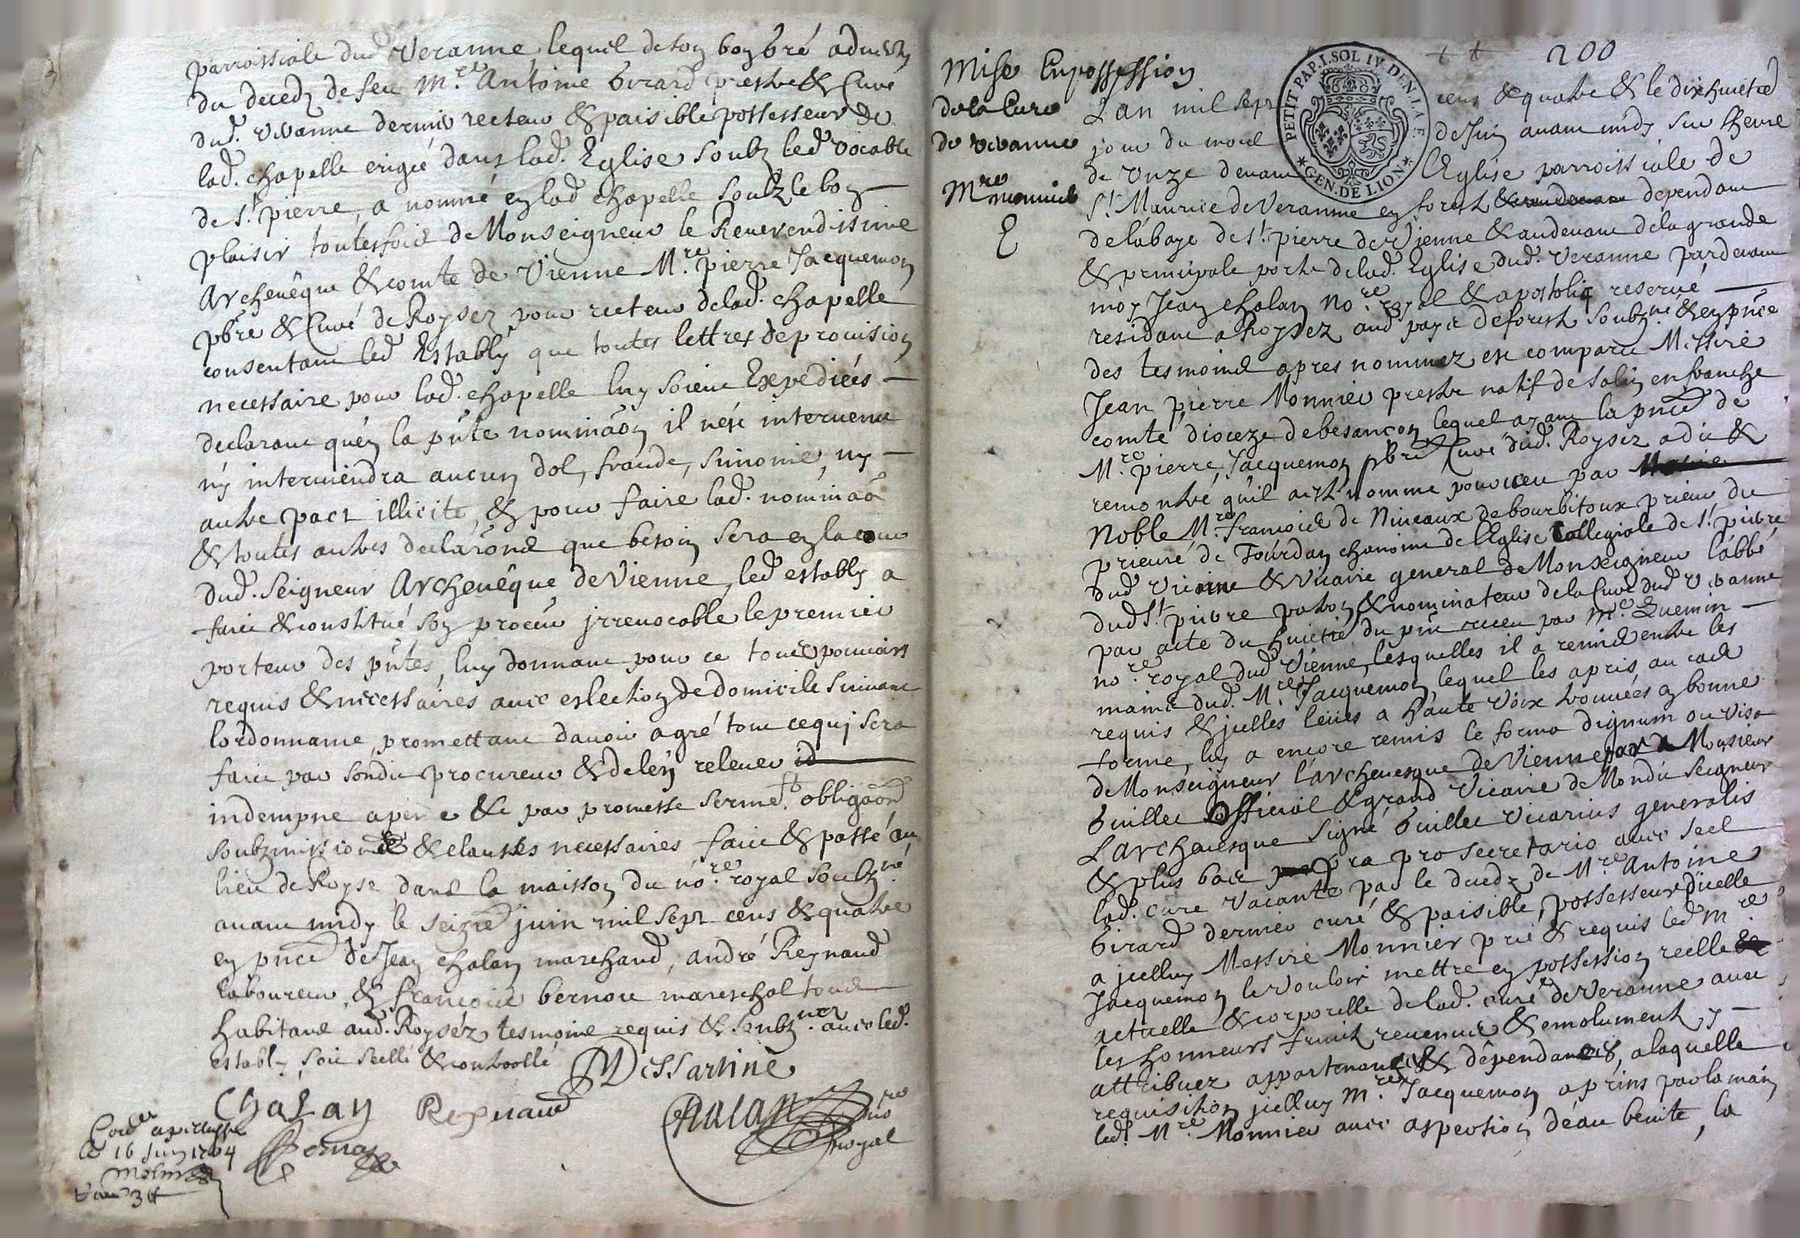 parroissiale dud. Veranne lequel de son bon gré advenu
du deceds de feu M.re Antoine Girard prestre & Curé
dud. Veranne dernier recteur & paisible possesseur de
lad. chapelle erigée dans lad. Eglise soubz led. vocable
de S.t pierre, a nommé en lad. chapelle soubz le bon
plaisir toutesfois de Monseigneur le Reverendissime
Archevêque & comte de Vienne M.re pierre Jacquemon
pbre & Curé de Roysez pour recteur de lad. chapelle
consentant led. Estably que toutes lettres de provision
necessaire pour lad. chapelle luy soient Expediées —
declarant qu'en la pñte nominãon il n'est intervenu
ny interviendra aucun dol, fraude, simonie, ny —
autre pact illicite, & pour faire lad. nominãon
& toutes autres declarõns que besoin sera en la cour
dud. Seigneur Archevêque de Vienne, led. estably a
faict & constitué son procur irrevocable le premier
porteur des pñtes, luy donnant pour ce tous pouvoirs
requis & necessaires avec eslection de domicile suivant
lordonnance, promettant davoir agré tout ce qui sera
faict par sondit procureur & de l'en relever id
indempne a peine &c par promesse serme.t obligãons
soubzmissions & clauses necessaires faict & passé au
lieu de Roysé dans la maison du no.re royal soubz.né
avant midy le seize juin mil sept cens & quatre
en pñce de Jean Chalan marchand, andré Reynaud
laboureur, & françois bernou mareschal tous
habitans aud. Roysez tesmoins requis & soubz.nez avec led.
estably, soit scellé & controollé. Dessartine
Chalan Reynaud Chalan no.re royal
Bernou
Con.lé a pelussi
le 16 Juin 1704
Molin
200
Mise En possession
de la Cure
de Veranne
M.re monnier
L'an mil sept cens & quatre & le dixhuictie
jour du mois de Juin avant midy sur lheure
de Unze devant l'Eglise parroissiale de
S.t Maurice de Veranne en forest dependant
de labaye de S.t pierre de Vienne & audevant de la grande
& principale porte de lad. Eglise dud. Veranne pardevant
moy Jean Chalan No.re royal & apostoliq reservé —
residant a Roysez aud. pays de forest soubz.né & en pñce
des tesmoins apres nommez est comparu Messire
Jean pierre Monnier prestre natif de Salin en franche
comté dioceze de besancon lequel ayant la pñce de
M.re pierre Jacquemon pbre Curé dud. Roysez a dit &
remontré qu'il est nommé pourveu par
Noble M.re francois de Niveaux de bourbitoux prieur du
prieuré de Tourdan chanoine de l'Eglise Collegiale de S.t pierre
dud. Vienne & vicaire general de Monseigneur l'abbé
dud. S.t pierre patron & nominateur de la Cure dud. Veranne
par acte du huictie du pñt receu par M.re Guemin —
no.re royal dud. Vienne, lesquelles il a remis entre les
mains dud. M.re Jacquemon, lequel les a pris au cas
requis & jcelles leües a haute voix trouvées en bonne
forme, luy a encore remis le forma dignum ou visa
de Monseigneur l'archevesque de Vienne par Monsieur
buillet Official & grand Vicaire de Mondit Seigneur
L'archevesque signé buillet Vicarius generalis
& plus bas pra pro secretario avec scel
lad. cure vacante par le deceds de M.re Antoine
Girard dernier curé & paisible, possesseur dicelle
a jcelluy Messire Monnier prié & requis led. M.re
Jacquemon le vouloir mettre en possession reelle
actuelle & corporelle de lad. cure de Veranne avec
les honneurs fruits revenus & emoluments y —
attribuez appartenances & dépendances, a laquelle
requisition jcelluy M.re Jacquemon a prins par la main
led. M.re Monnier avec aspertion déau benite, la
PETIT PAP. I. SOL IV DEN. LA F.
GEN. DE LION